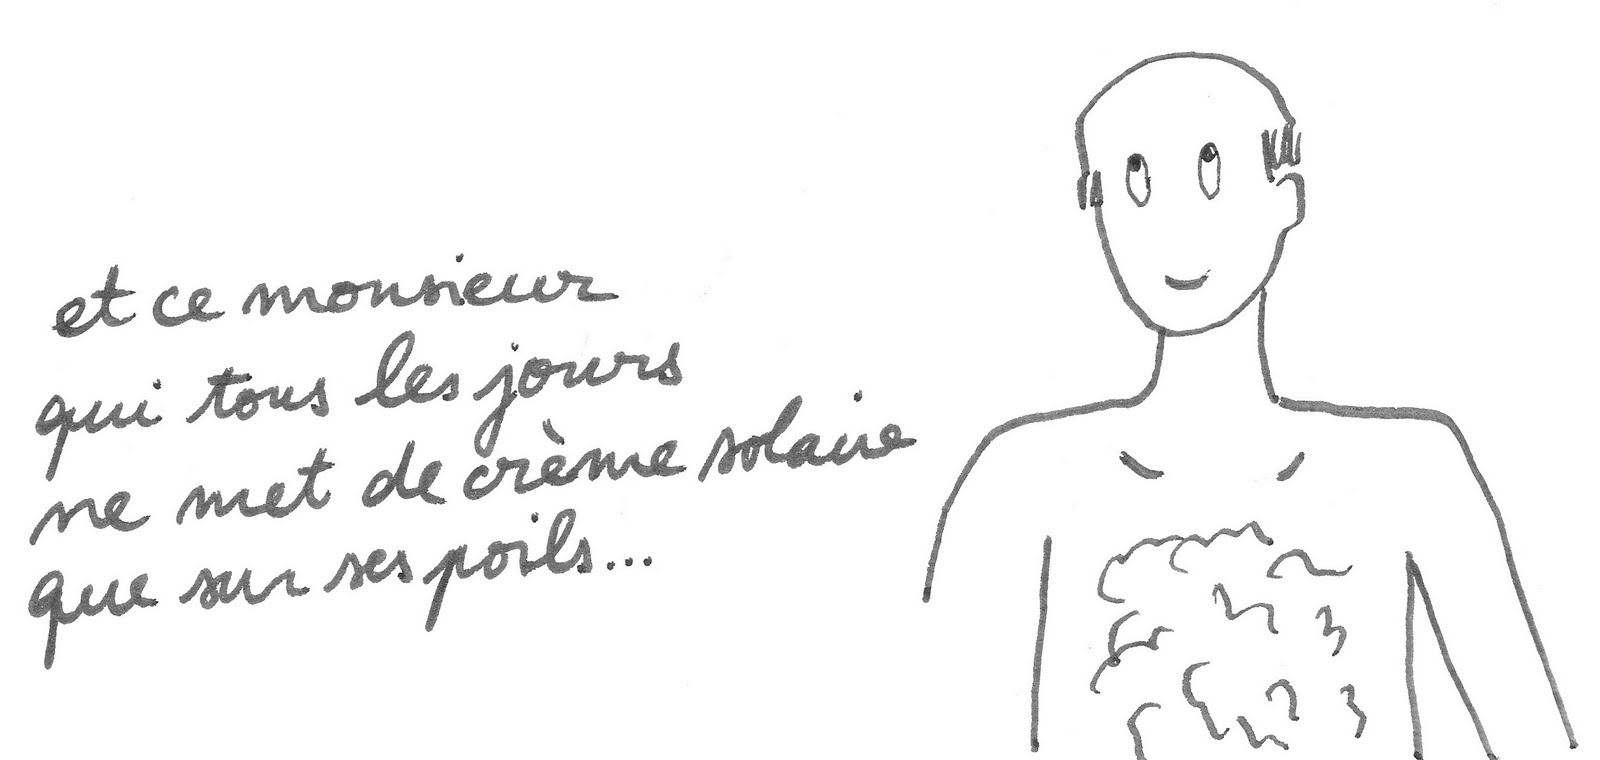 et ce monsieur
qui tous les jours
ne met de crème solaire
que sur ses poils...